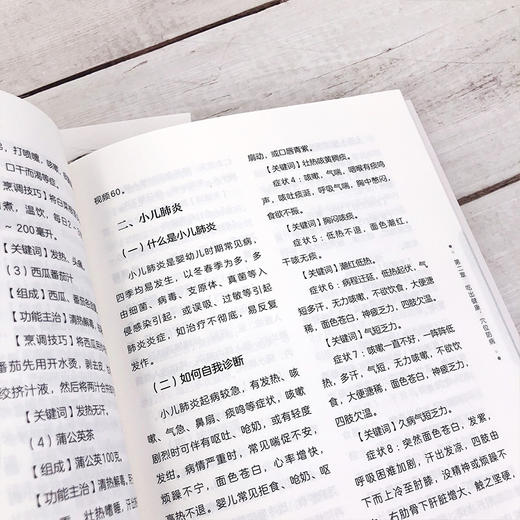 打喷嚏，咳嗽，
口干而渴等症。
【烹调技巧】将白菜
煮，温饮，每日2~
~ 200毫升。
【关键词】发热、头痛
（3）西瓜番茄汁
【组成】西瓜、番茄各
【功能主治】清热解
【烹调技巧】将西瓜
番茄先用开水烫，剥去皮，
绞挤汁液，然后将两汁合
【关键词】发热无汗。
（4）蒲公英茶
【组成】蒲公英100克。
【功能主治】清热解毒，
壮热嗜睡，汗
视频60。
二、小儿肺炎
（一）什么是小儿肺炎
小儿肺炎是婴幼儿时期常见病，
四季均易发生，以冬春季为多，多
由细菌、病毒、支原体、真菌等入
侵感染引起，或误吸、过敏等引起
肺炎炎症，如治疗不彻底，易反复
发作。
（二）如何自我诊断
小儿肺炎起病较急，有发热、咳
嗽、气急、鼻扇、痰鸣等症状，咳嗽
剧烈时可伴有呕吐、呛奶，或有轻度
发绀。病情严重时，常见喘促不安，
烦躁不宁，面色苍白，心率增快，
高热不退。婴儿常见拒食、呛奶、呕
扇动，或口唇青紫。
【关键词】壮热咳黄稠痰。
症状4：咳嗽，气喘，咽喉有痰鸣
声，咳吐痰涎，呼吸气喘，胸中憋闷，
食欲不振。
【关键词】胸闷咳痰。
症状5：低热不退，面色潮红，
干咳无痰。
【关键词】潮红低热。
症状6：病程迁延，低热起伏，气
短多汗，无力咳嗽，不欲饮食，大便溏
稀，面色苍白，神疲乏力，四肢欠温。
【关键词】气短乏力。
症状7：咳嗽一直不好，一阵阵低
热，多汗，气短，无力咳嗽，不欲饮
食，大便溏稀，面色苍白，神疲乏力，
四肢欠温。
【关键词】久病气短乏力。
症状8：突然面色苍白，发紫，
呼吸困难加剧，汗出发凉，四肢由
下而上冷至肘膝，没精神或烦躁不
右肋骨下肝脏增大，触之感觉
第二章 吃出健康，穴位祛病